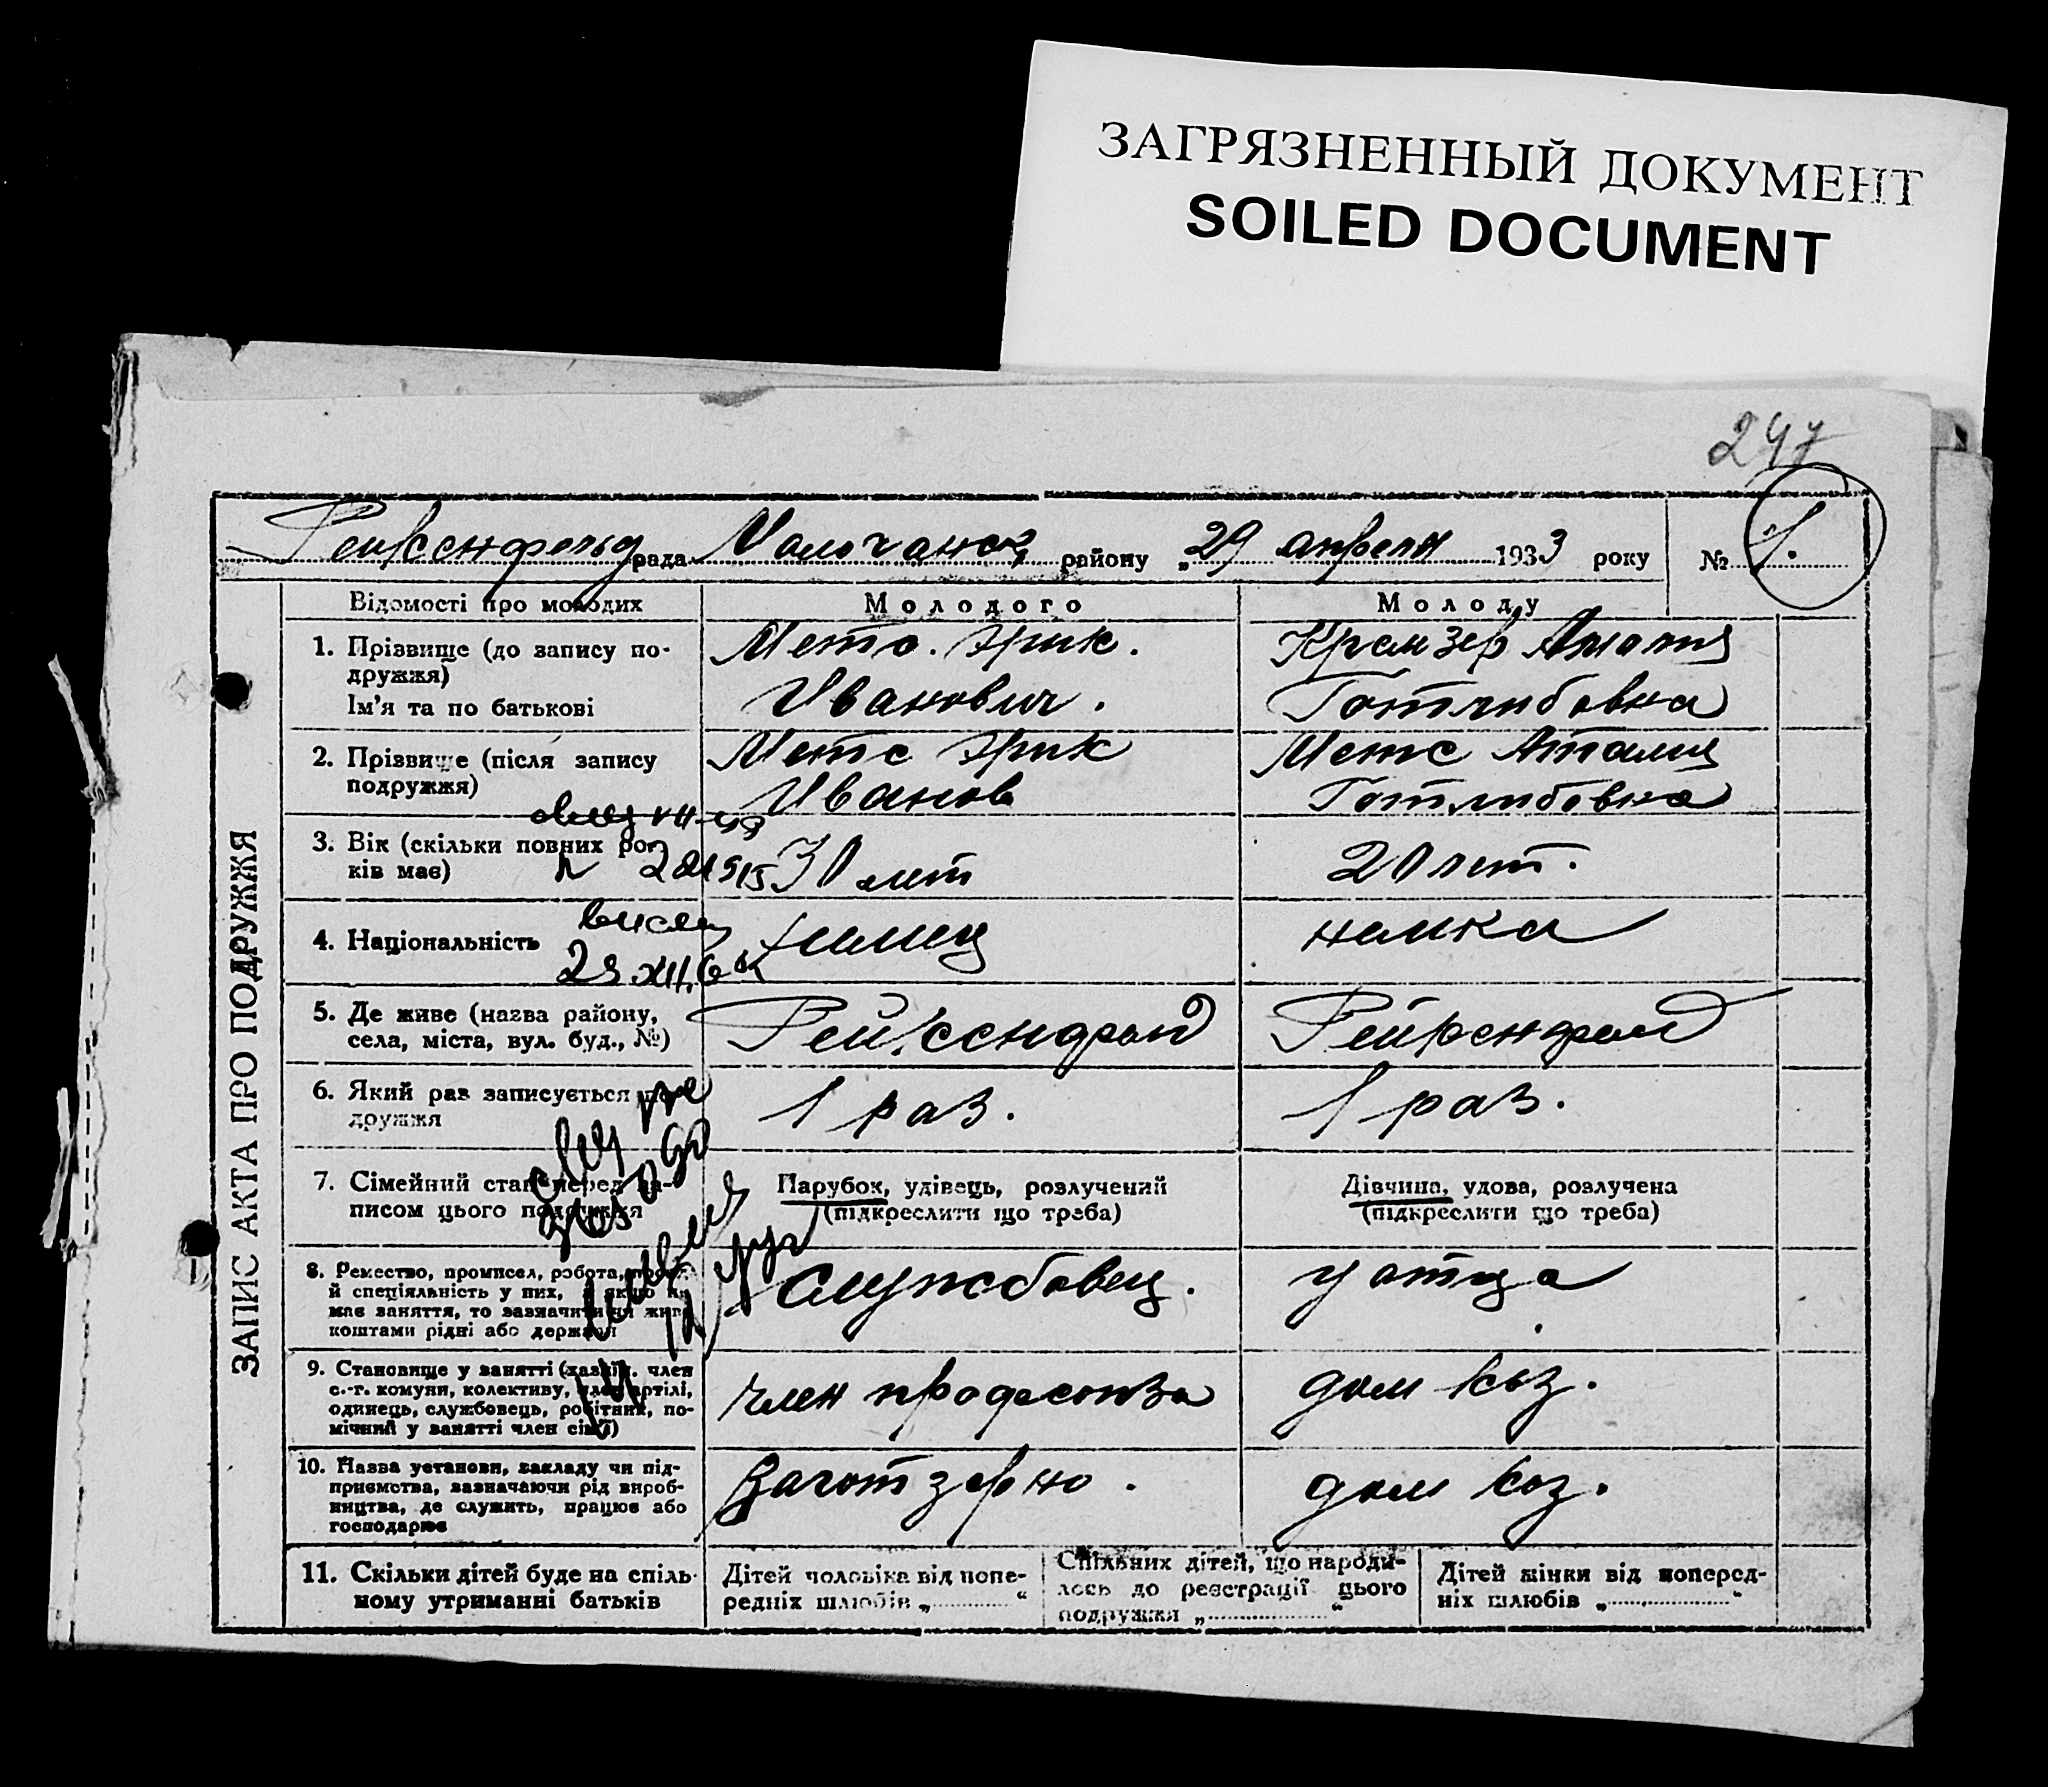 ЗАГРЯЗНЕННЫЙ ДОКУМЕНТ
SOILED DOCUMENT
247
Рейхенфельд рада Молочанск району „29 апреля 1933 року № 1.
ЗАПИС АКТА ПРО ПОДРУЖЖЯ
Відомості про молодих Молодого Молоду
1. Прізвище (до запису по-
дружжя)
Ім'я та по батькові
Метс. Эрик.
Иванович.
Кремзер
Готлибовна
2. Прізвище (після запису
подружжя)
Метс Эрик
Иванов
Метс Аталия
Готлибовна
3. Вік (скільки повних ро-
ків має)
30 лет
20 лет.
4. Національність
немец
немка
5. Де живе (назва району,
села, міста, вул. буд., №)
Рейхенфельд
Рейхенфельд
6. Який раз записується по-
дружжя
1 раз.
1 раз.
7. Сімейний стан перед за-
писом цього подружжя
Парубок, удівець, розлучений
(підкреслити що треба)
Дівчина, удова, розлучена
(підкреслити що треба)
8. Ремество, промисел, робота,
й спеціяльність у них, а якщо не
має заняття, то зазначити чи живе
коштами рідні або держави
Службовец.
у отца
9. Становище у занятті (хазяїн, член
с.-г. комуни, колективу, член артілі,
одинець, службовець, робітник, по-
мічний у занятті член сім'ї)
член профсоюза
дом хоз.
10. Назва установи, закладу чи під-
приємства, зазначаючи рід вироб-
ництва, де служить, працює або
господарює
Заготзерно.
дом хоз.
11. Скільки дітей буде на спіль-
ному утриманні батьків
Дітей чоловіка від попе-
редніх шлюбів „ “
Спільних дітей, що народи-
лось до реєстрації цього
подружжя „ “
Дітей жінки від поперед-
ніх шлюбів „ “